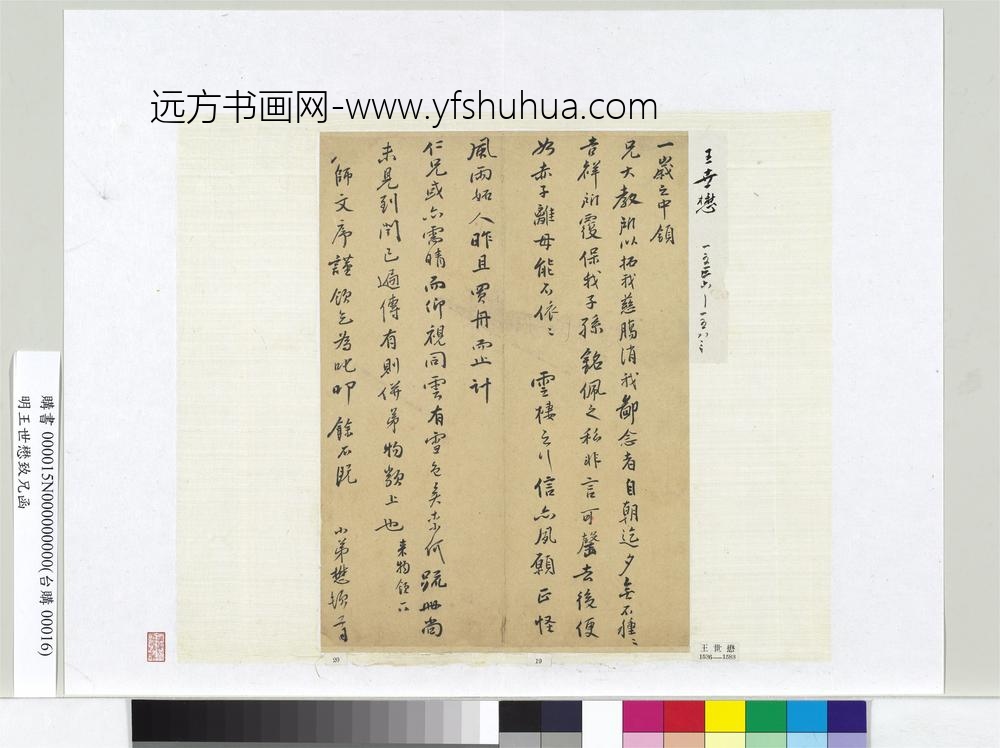 远方书画网-www.yfshuhua.com
王世懋
一五三六—一五八三
一歲之中領
兄大教所以拓我慈腸消我鄙念者自朝迄夕無不種〻
吉祥所覆保我子孫銘佩之私非言可罄去後便
如赤子離母能不依〻 雲棲之行信亦夙願正怪
風雨妬人昨且買舟而止計
仁兄或亦需晴而仰視同雲有雪色矣奈何疏冊尚
未見到閏已遍傳有則併弟物類上也
来物領
師文序謹領乞為叱叩餘不既
小弟懋頓首
王世懋
1536—1583
20
19
購書 000015N000000000(台購 00016)
明王世懋致兄函